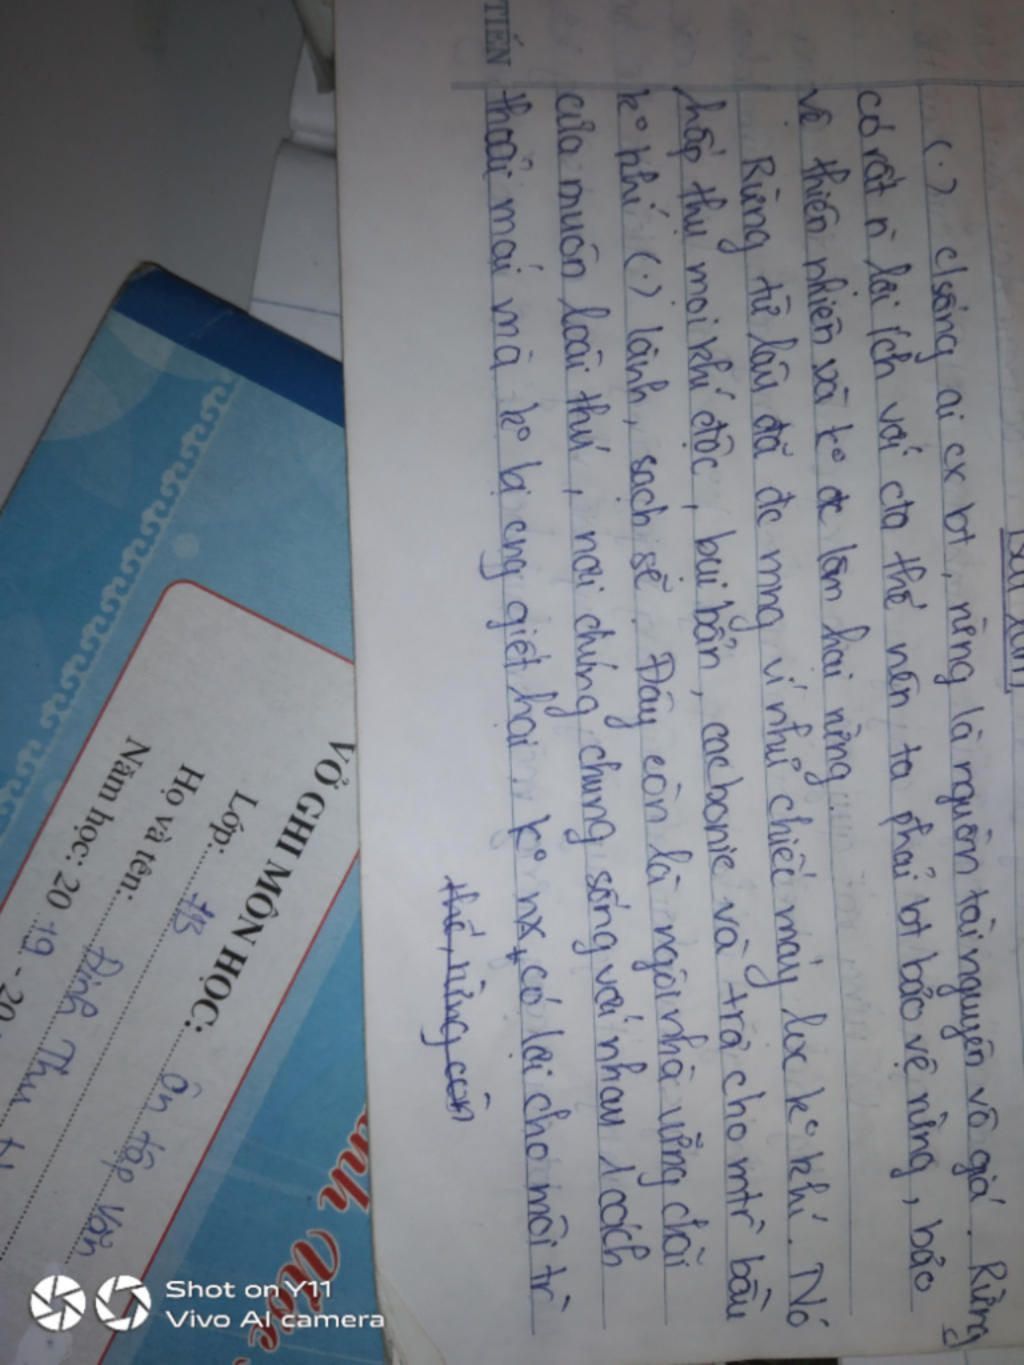 Bài làm
(.) c/sống ai cx bt, rừng là nguồn tài nguyên vô giá. Rừng
có rất n` lợi ích với cta thế nên ta phải bt bảo vệ rừng, bảo
vệ thiên nhiên và k° đc làm hại rừng
Rừng từ lâu đã đc mng ví như chiếc máy lọc k° khí. Nó
hấp thụ mọi khí độc, bụi bẩn, cacbonic và trả cho mtr` bầu
k° khí (.) lành, sạch sẽ. Đây còn là ngôi nhà vững chãi
của muôn loài thú, nơi chúng chung sống với nhau 1 cách
thoải mái mà k° bị cng giết hại. k° nx, có lợi cho môi tr`
thế, rừng còn
TIẾN
VỞ GHI MÔN HỌC: Ôn tập Văn
Lớp:
Họ và tên: Đinh Thu
Năm học: 20 19 - 20
Shot on Y11
Vivo AI camera